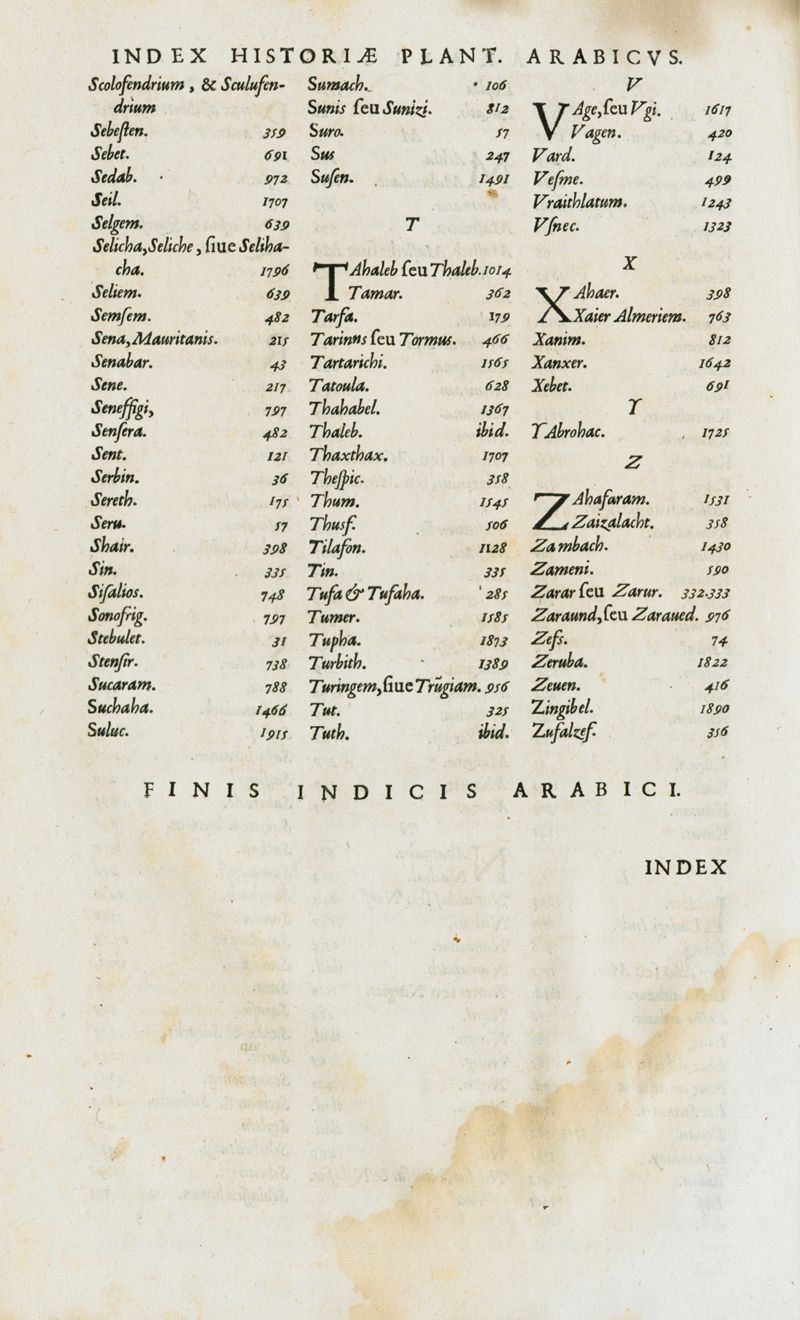 INDEX HISTORIÆ PLANT. ARABICVS.
Scoloſendrium, & Sculuſen-
drium
Sebeſten. 359
Sebet. 691
Sedab. 972
Seil. 1707
Selgem. 639
Selicha, Seliche, ſiue Seliha-
cha. 1796
Seliem. 639
Semſem. 482
Sena, Mauritanis. 215
Senabar. 43
Sene. 217
Seneffigi, 797
Senſera. 482
Sent. 121
Serbin. 36
Sereth. 175
Seru. 57
Shair. 398
Sin. 335
Siſalios. 748
Sonofrig. 797
Stebulet. 31
Stenſir. 738
Sucaram. 788
Suchaha. 1466
Suluc. 1915
Sumach. 106
Sunis ſeu Sunizi. 812
Suro. 57
Sus 247
Suſen. 1491
T
TAhaleb ſeu Thaleb. 1014
Tamar. 362
Tarfa. 179
Tarinus ſeu Tormus. 466
Tartarichi. 1565
Tatoula. 628
Thahabel. 1367
Thaleb. ibid.
Thaxthax. 1707
Theſpic. 358
Thum. 1545
Thusf. 506
Tilafon. 1128
Tin. 335
Tufa & Tufaha. 285
Tumer. 1585
Tupha. 1873
Turbith. 1389
Turingem, ſiue Trūgiam. 956
Tut. 325
Tuth. ibid.
V
VAge, ſeu Vgi. 1617
Vagen. 420
Vard. 124
Veſme. 499
Vraithlatum. 1243
Vſnec. 1323
X
XAhaer. 398
Xaier Almeriem. 763
Xanim. 812
Xanxer. 1642
Xebet. 691
Y
YAbrohac. 1725
Z
ZAhafaram. 1531
Zaizalacht. 358
Zambach. 1430
Zameni. 590
Zarar ſeu Zarur. 332.333
Zaraund, ſeu Zaraued. 976
Zefs. 74
Zeruba. 1822
Zeuen. 416
Zingibel. 1890
Zufalzef. 356
FINIS INDICIS ARABICI.
INDEX